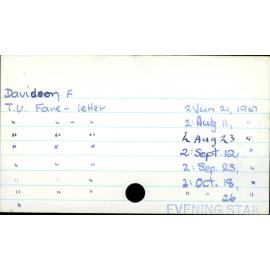 Davidson F
T.U. Fare - letter 2 Jun 21, 1967
" " - " 2: Aug 11, "
" " " 2 Aug 23 "
" " " 2: Sept 12 "
" " " 2: Sep. 23, "
" " " 2: Oct. 18, "
" " " " - " 26 "
"
EVENING STAR